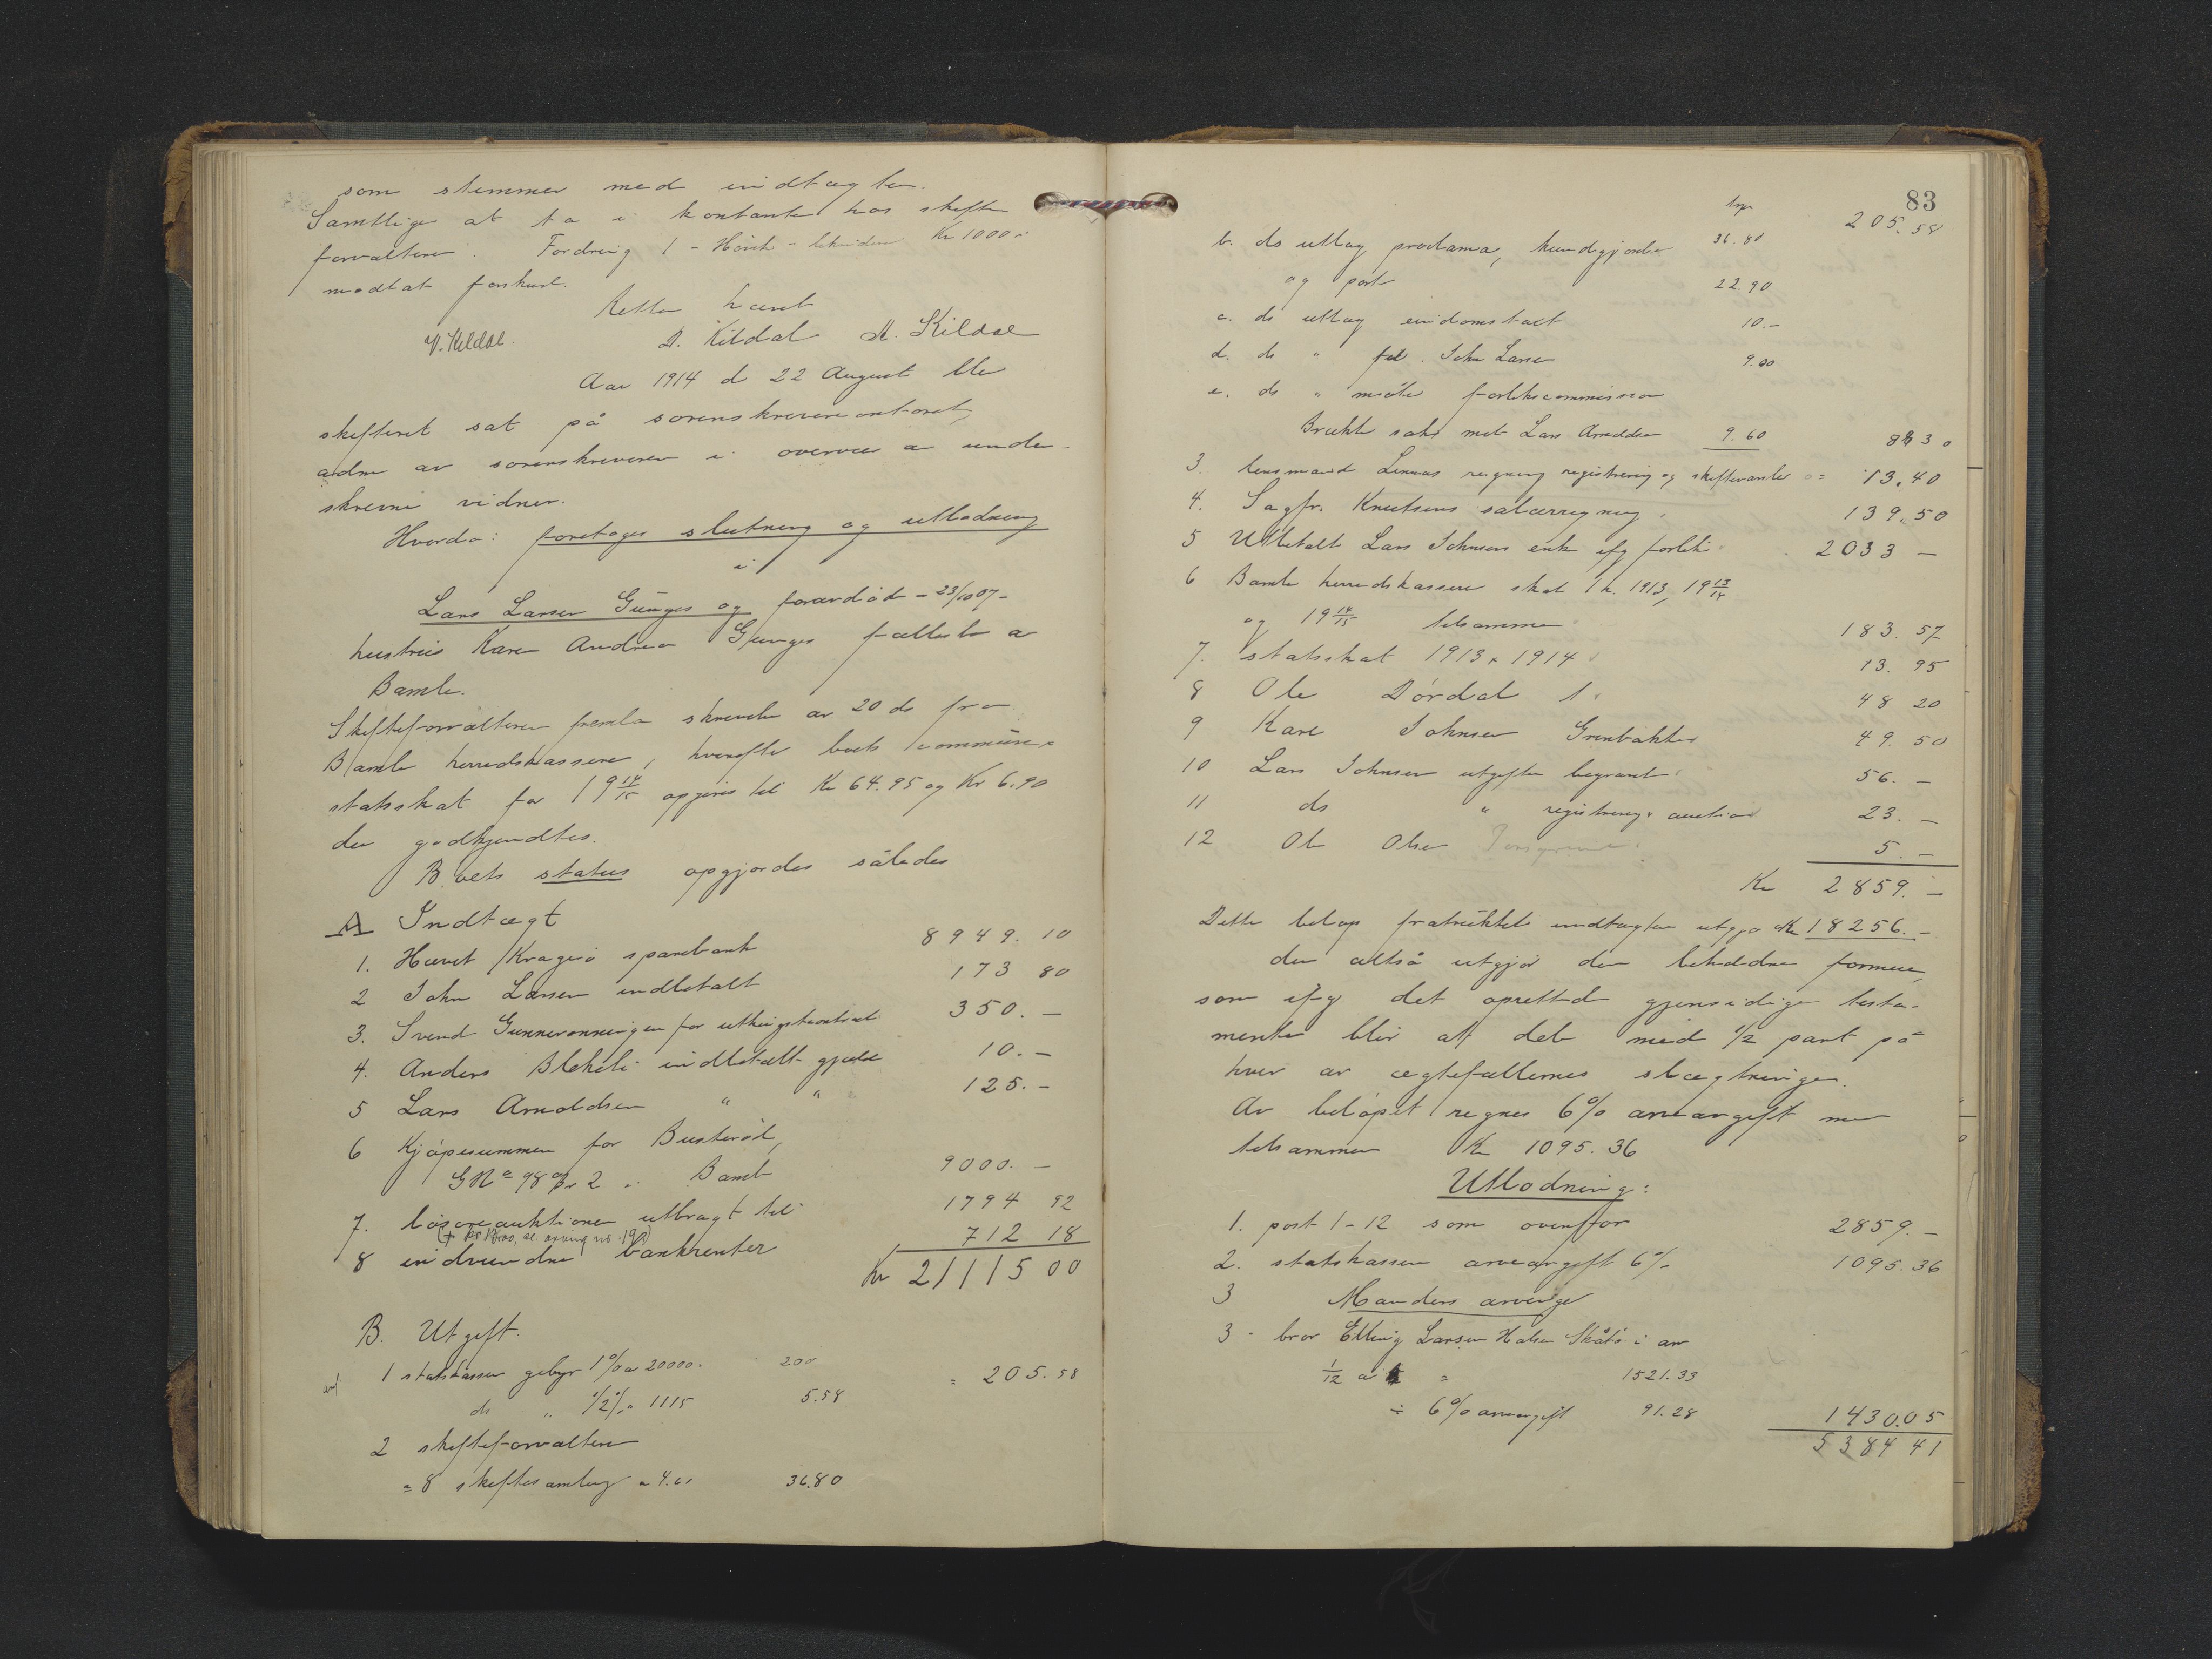 som stemmer med indtægten.
Samtlige at ta i kontanter hos skifte
forvalteren. Fordring 1 - Hørsk - Kr 1000 -
modtat forskud.
Retten hævet
V. Kildal D. Kildal M. Kildal
Aar 1914 d 22 August blev
skifteret sat på sorenskriverkontoret,
adm av sorenskriveren i overvær a under-
skrevne vidner.
Hvorda: foretoges slutning og utlodning
i
Lars Larsen Gunges og foravdød - 23/10 07 -
hustru Karen Andrea Gunges fællesbo a
Bamle.
Skifteforvalteren fremla skrivelse av 20 ds fra
Bamle herredskasserer, hvorefter boets commune
statsskat for 19 14/15 opgives til Kr 64.95 og Kr 6.90
der godkjendtes.
Boets status opgjordes således
A Indtægt
1. Hævet i Kragerø sparebank 8949. 10
2 John Larsen indbetalt 173 80
3. Svend Gunnerønningen for uthugstkontrakt 350. -
4. Anders Blekeli indbetalt gjæld 10. -
5 Lars Arnoldsen " " 125. -
6 Kjøpesummen for Busterød,
GNo 98 Br 2 i Bamle 9000. -
7. løsøreauktionen utbragt til 1794 92
8 indvundne bankrenter 712 18
Kr 21115 00
B. Utgift.
1 statskassen gebyr 1% a 20000. 200
ds " 1/2% a 1115 5.58 = 205.58
2 skifteforvalteren
a 8 skiftesamling a 4.60 36.80
83
Trpr 205.58
36.80
b. ds utlæg proclama, kundgjørelse
og porto 22.90
c. ds utlæg eiendomstakst 10.-
d. ds " John Larsen 9.00
e. ds " møte forlikscommission
Brække sak mot Lars Arnoldsen 9.60 88 30
3. lensmand Linaas regning registrering og skiftesamling = 13.40
4. Sagfr. Knutsens salærregning 139.50
5 Utbetalt Lars Johnsens enke ifg forlik 2033 -
6 Bamle herredskasserer skat 1 h. 1913, 19 13/14
og 19 14/15 tilsammen 183. 57
7. Statsskat 1913 & 1914 13. 95
8 Ole Dørdal 1 48 20
9 Karl Johnsen Grenbakken 49. 50
10 Lars Johnsen utgifter begravel. 56. -
11 ds " registrering & auction 23. -
12 Ole Olsen 5. -
Kr 2859. -
Dette beløp fratrukket indtægten utgjør Kr 18256. -
der altså utgjør den beholdne formue,
som ifg det oprettede gjensidige testa-
mente blir at dele med 1/2 part på
hver av ægtefællernes slægtninger.
Av beløpet regnes 6% arveavgift med
tilsammen Kr 1095. 36
Utlodning:
1. post 1-12 som ovenfor 2859. -
2. statskassen arveavgift 6% 1095. 36
3 Mandens arvinger
3 - bror Elling Larsen Halsen Skåtø i arv
1/12 = 1521. 33
÷ 6% arveavgift 91. 28 1430.05
5384 41